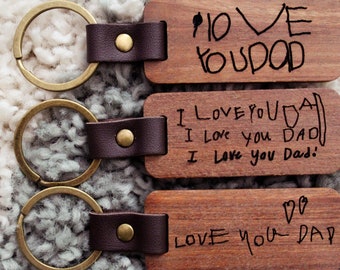 I LOVE
YOU DOD
I LOVE YOU DAD
I Love you DAD
I Love you Dad!
LOVE YOU DAD